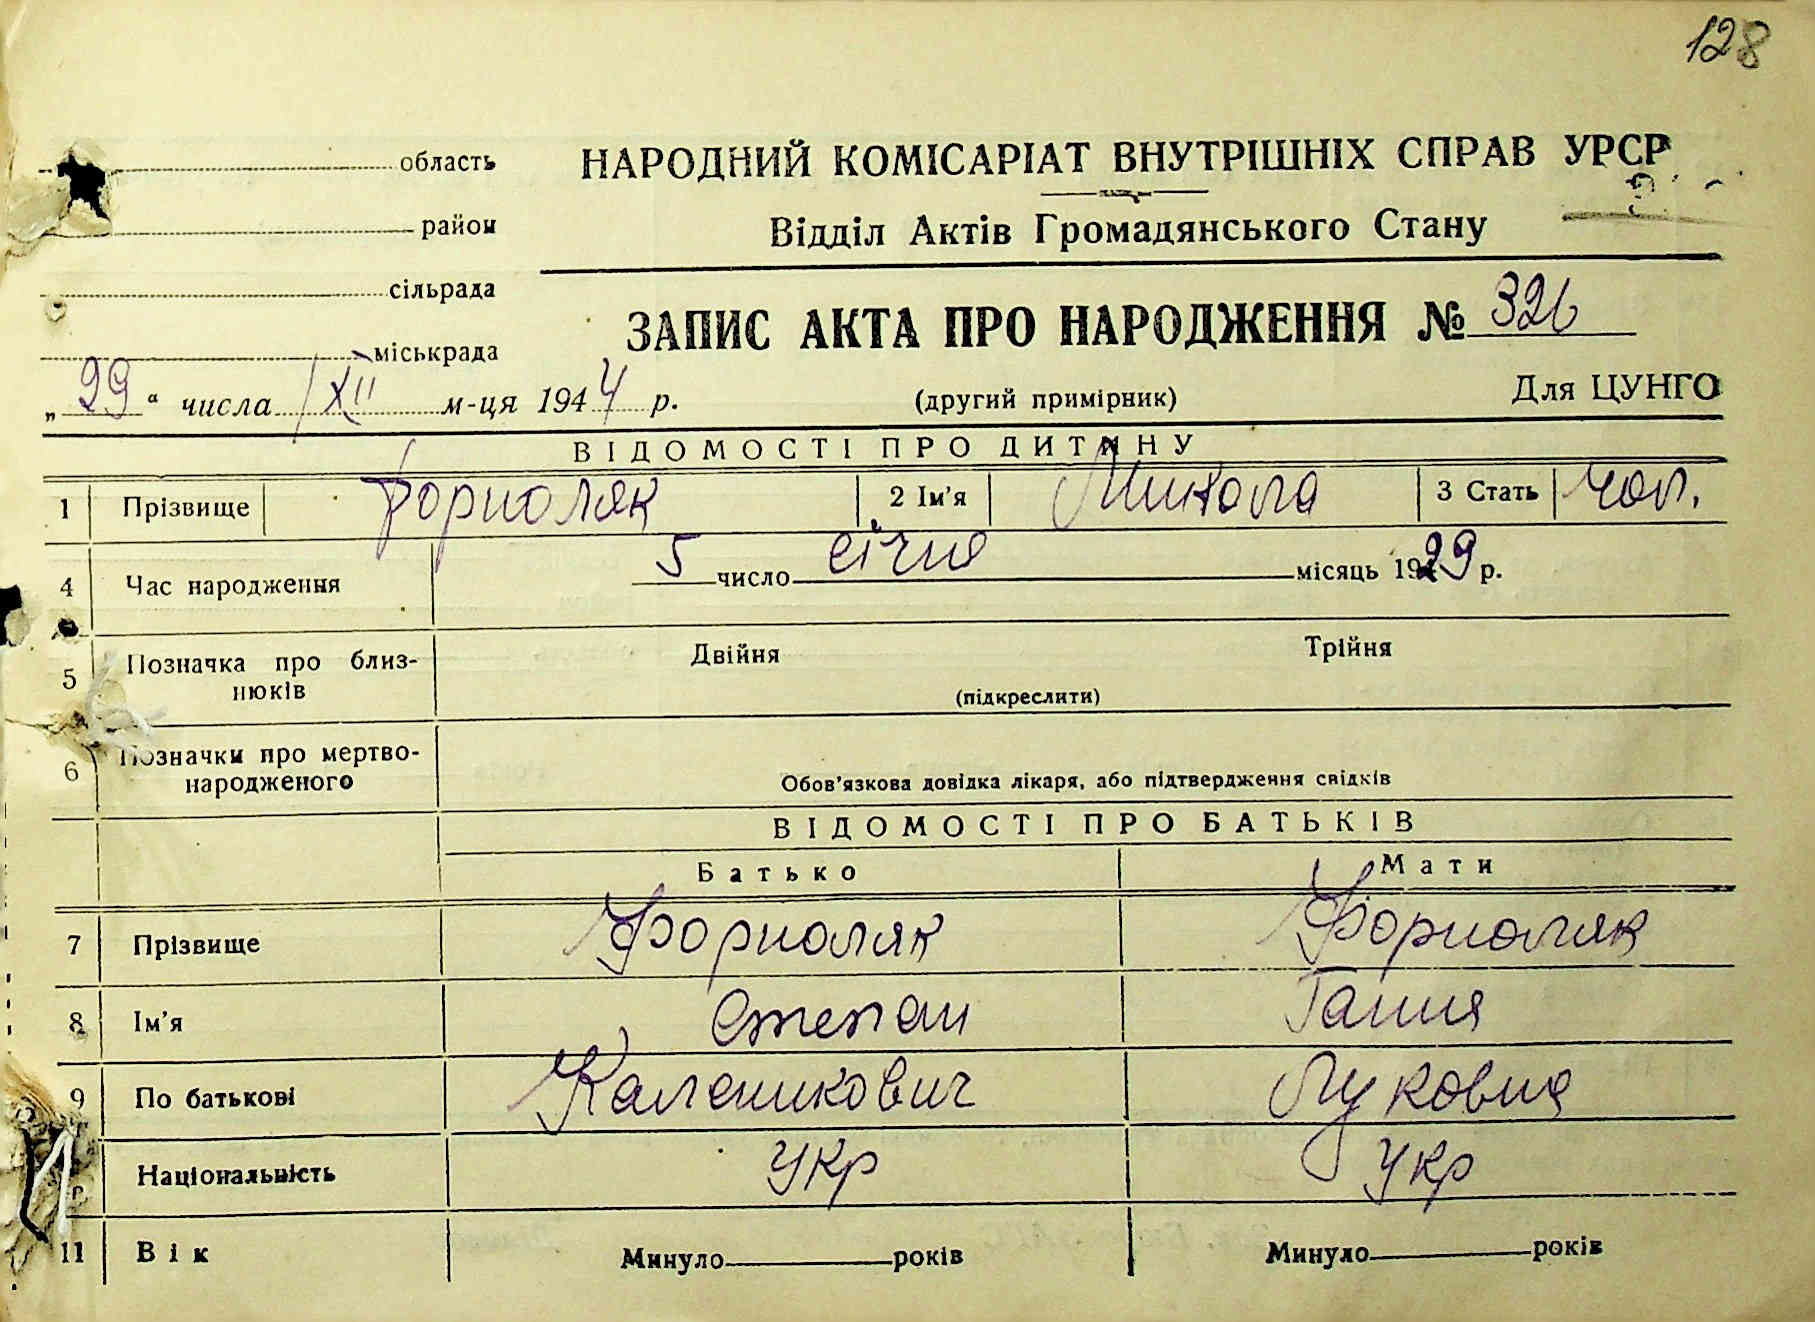 128
область
НАРОДНИЙ КОМІСАРІАТ ВНУТРІШНІХ СПРАВ УРСР
район
Відділ Актів Громадянського Стану
сільрада
ЗАПИС АКТА ПРО НАРОДЖЕННЯ № 326
міськрада
„29“ числа XII м-ця 1944 р.
(другий примірник)
Для ЦУНГО
ВІДОМОСТІ ПРО ДИТИНУ
1 Прізвище Форноляк 2 Ім'я Микола 3 Стать Чол.
4 Час народження 5 число січня місяць 1929 р.
5 Позначка про близ-
нюків
Двійня Трійня
(підкреслити)
6 Позначки про мертво-
народженого
Обов'язкова довідка лікаря, або підтвердження свідків
ВІДОМОСТІ ПРО БАТЬКІВ
Батько Мати
7 Прізвище Форноляк Форноляк
8 Ім'я Степан Ганна
9 По батькові Каленикович Луковна
Національність Укр Укр
11 Вік Минуло років Минуло років